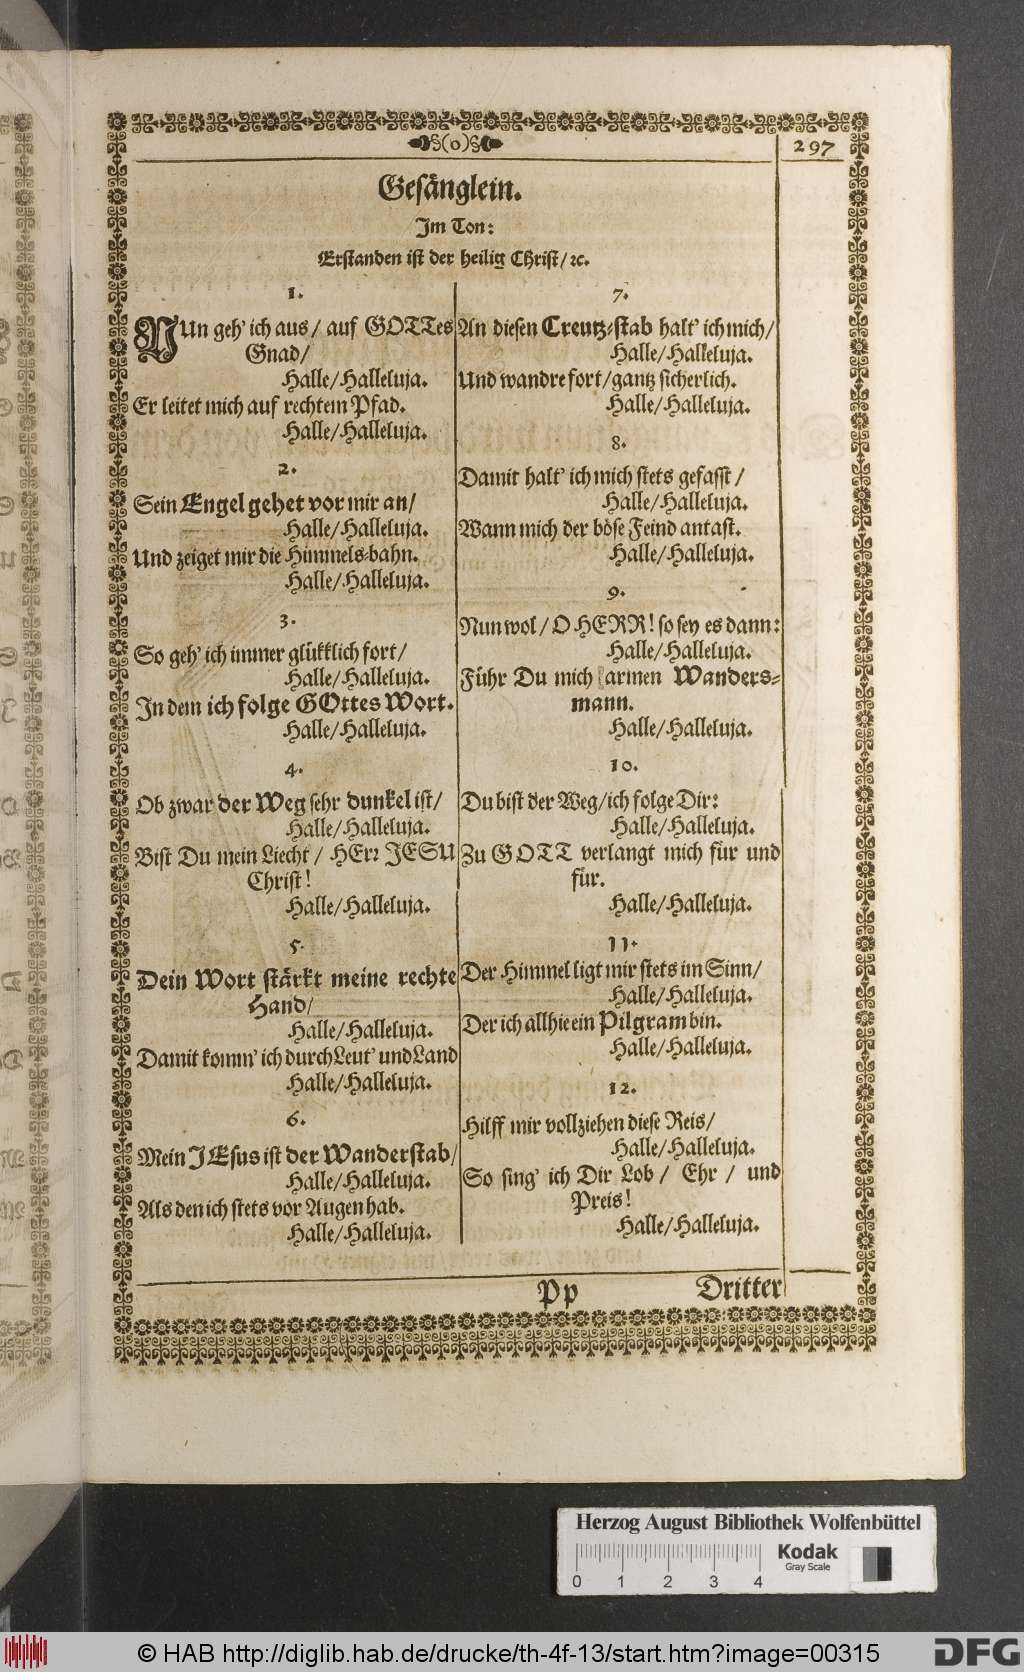 §(o)§
297
Gesänglein.
Im Ton:
Erstanden ist der heilig Christ/ ꝛc.
1.
NUn geh' ich aus/ auf GOTTes
Gnad/
Halle/Halleluja.
Er leitet mich auf rechtem Pfad.
Halle/Halleluja.
2.
Sein Engel gehet vor mir an/
Halle/Halleluja.
Und zeiget mir die Himmels-bahn.
Halle/Halleluja.
3.
So geh' ich immer glükklich fort/
Halle/Halleluja.
In dem ich folge GOttes Wort.
Halle/Halleluja.
4.
Ob zwar der Weg sehr dunkel ist/
Halle/Halleluja.
Bist Du mein Liecht / HErꝛ JESU
Christ!
Halle/Halleluja.
5.
Dein Wort stärkt meine rechte
Hand/
Halle/Halleluja.
Damit komm' ich durch Leut' und Land
Halle/Halleluja.
6.
Mein JEsus ist der Wanderstab/
Halle/Halleluja.
Als den ich stets vor Augen hab.
Halle/Halleluja.
7.
An diesen Creutz-stab halt' ich mich/
Halle/Halleluja.
Und wandre fort/gantz sicherlich.
Halle/Halleluja.
8.
Damit halt' ich mich stets gefasst /
Halle/Halleluja.
Wann mich der böse Feind antast.
Halle/Halleluja.
9.
Nun wol/ O HERR! so sey es dann:
Halle/Halleluja.
Führ Du mich armen Wanders-
mann.
Halle/Halleluja.
10.
Du bist der Weg/ich folge Dir:
Halle/Halleluja.
Zu GOTT verlangt mich für und
für.
Halle/Halleluja.
11.
Der Himmel ligt mir stets im Sinn/
Halle/Halleluja.
Der ich allhie ein Pilgram bin.
Halle/Halleluja.
12.
Hilff mir vollziehen diese Reis/
Halle/Halleluja.
So sing' ich Dir Lob / Ehr / und
Preis!
Halle/Halleluja.
Pp
Dritter
Herzog August Bibliothek Wolfenbüttel
Kodak
Gray Scale
0 1 2 3 4
© HAB http://diglib.hab.de/drucke/th-4f-13/start.htm?image=00315
DFG